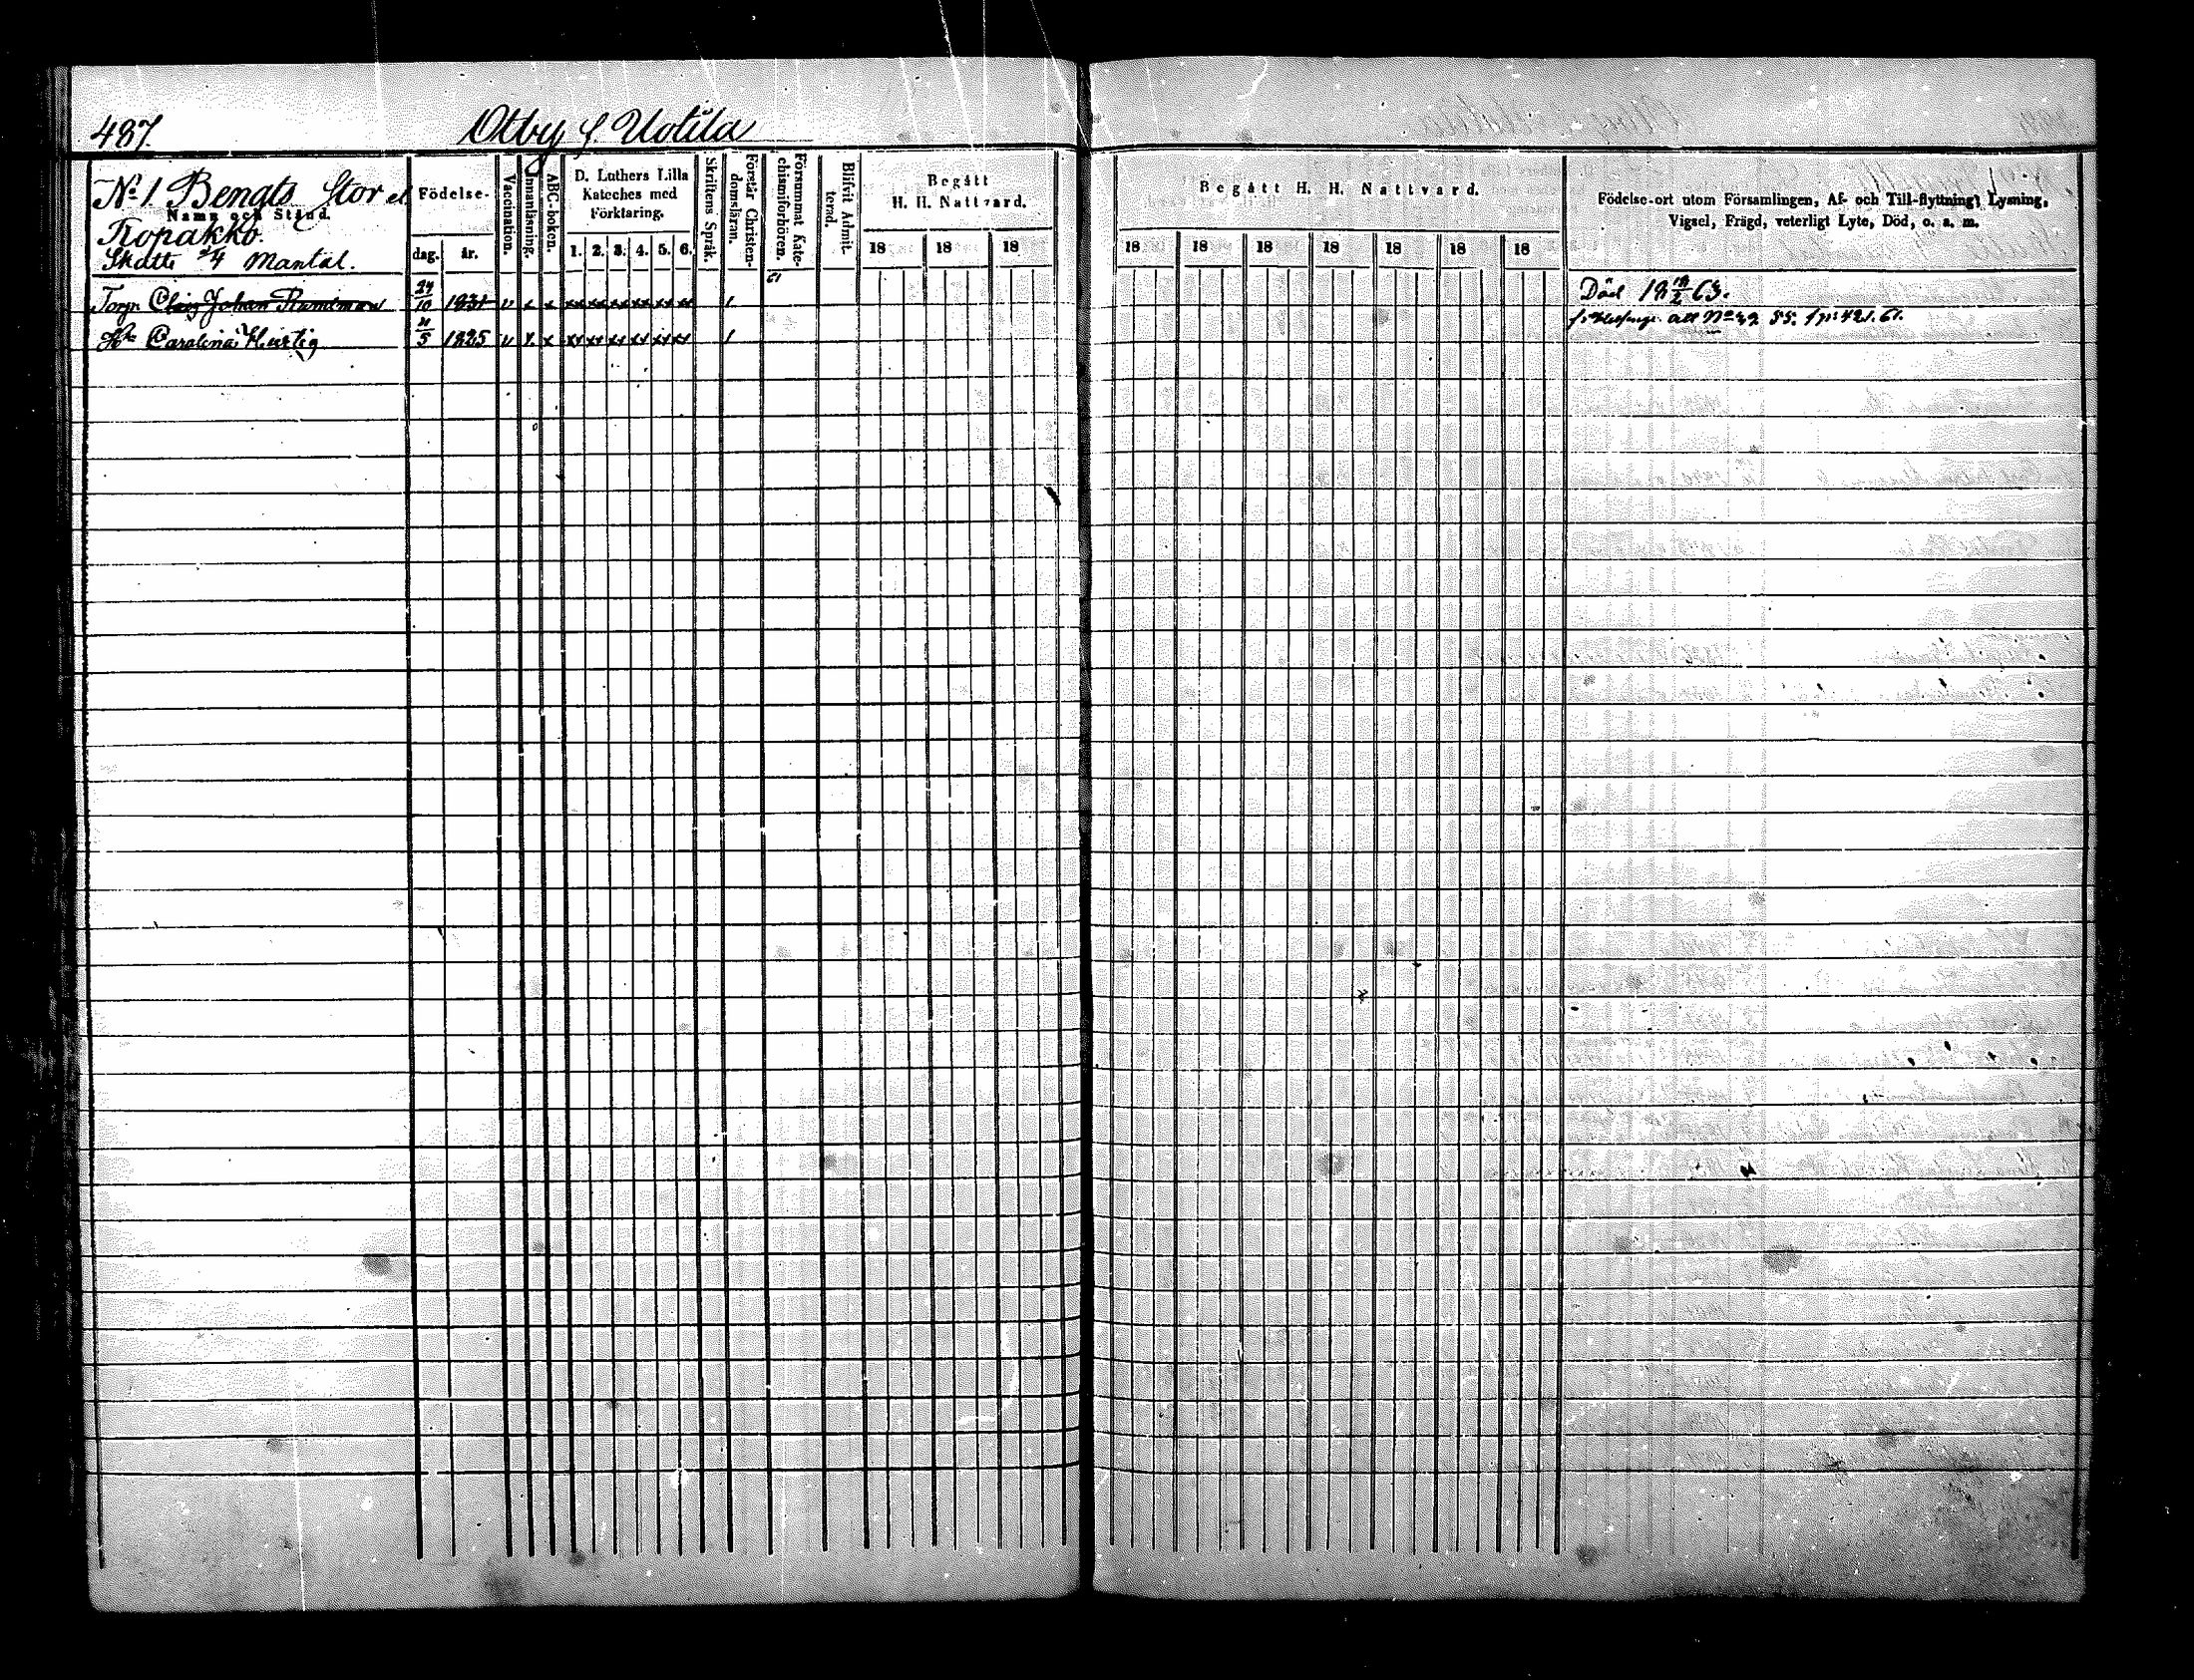 487.
Otby l. Uotila
N:o 1 Bengts Stor el
Namn och Stånd.
Kopakko.
Skatte 3/4 Mantal.
Födelse-
dag. år.
Vaccination.
Innanläsning.
ABC-boken.
D. Luthers Lilla
Kateches med
Förklaring.
1. 2. 3. 4. 5. 6.
Skriftens Språk.
Förstår Christen-
domsläran.
Försummat Kate-
chismiförhören.
Blifvit Admit-
terad.
Begått
H. H. Nattvard.
18 18 18
Begått H. H. Nattvard.
18 18 18 18 18 18 18
Födelse-ort utom Församlingen, Af- och Till-flyttning, Lysning,
Vigsel, Frägd, veterligt Lyte, Död, o. a. m.
61
Torp. Johan 24/10 1831 v x x xx xx xx xx xx xx 1 Död 63.
H:u Carolina Hurtig /5 1825 v x x xx xx xx xx xx xx 1 55. 421. 61.